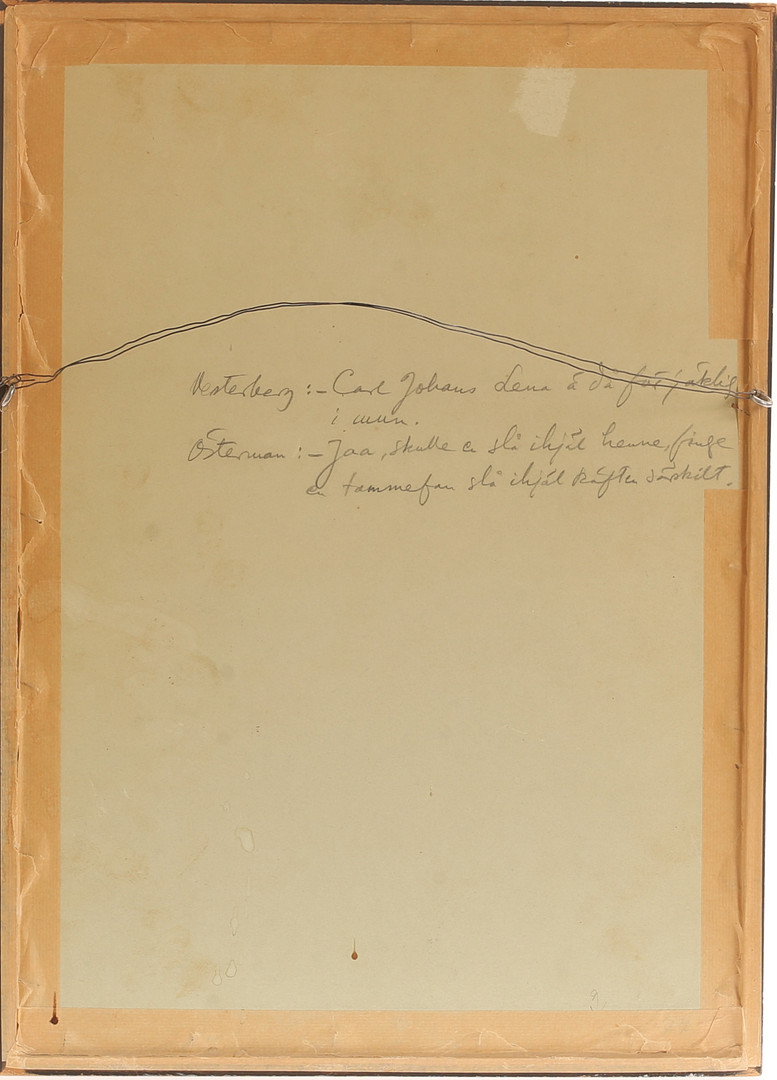 Vesterberg :- Carl Johans Lena ä då för jäklig
i mun.
Österman :- Jaa, skulle en slå ihjäl henne, finge
en tammefan slå ihjäl käften särskilt.
9